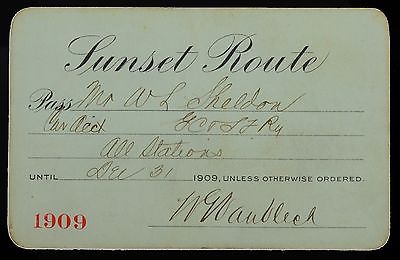 Sunset Route
Pass Mr W L Sheldon
GC & S F Ry
All Stations
UNTIL Dec 31 1909, UNLESS OTHERWISE ORDERED.
1909